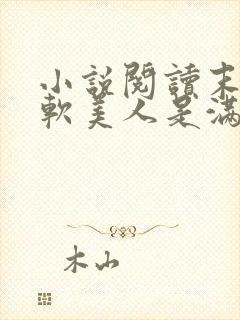 小説閱讀末
軟美人是滿
木山